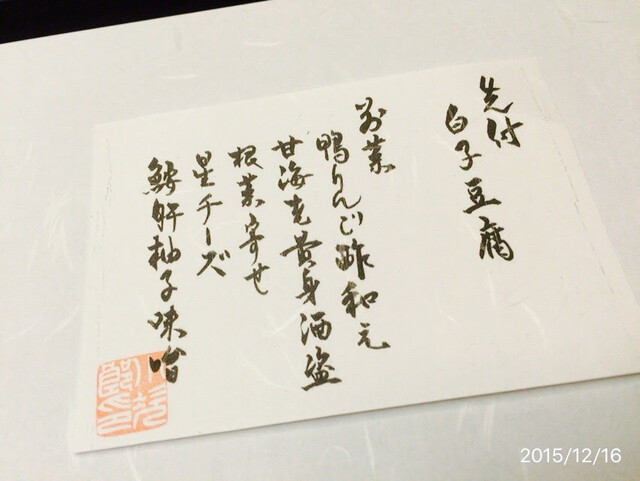 先付
白子豆腐
前菜
鴨りんご酢和え
甘海老黄身酒盗
根菜寄せ
星チーズ
鮟肝柚子味噌
2015/12/16